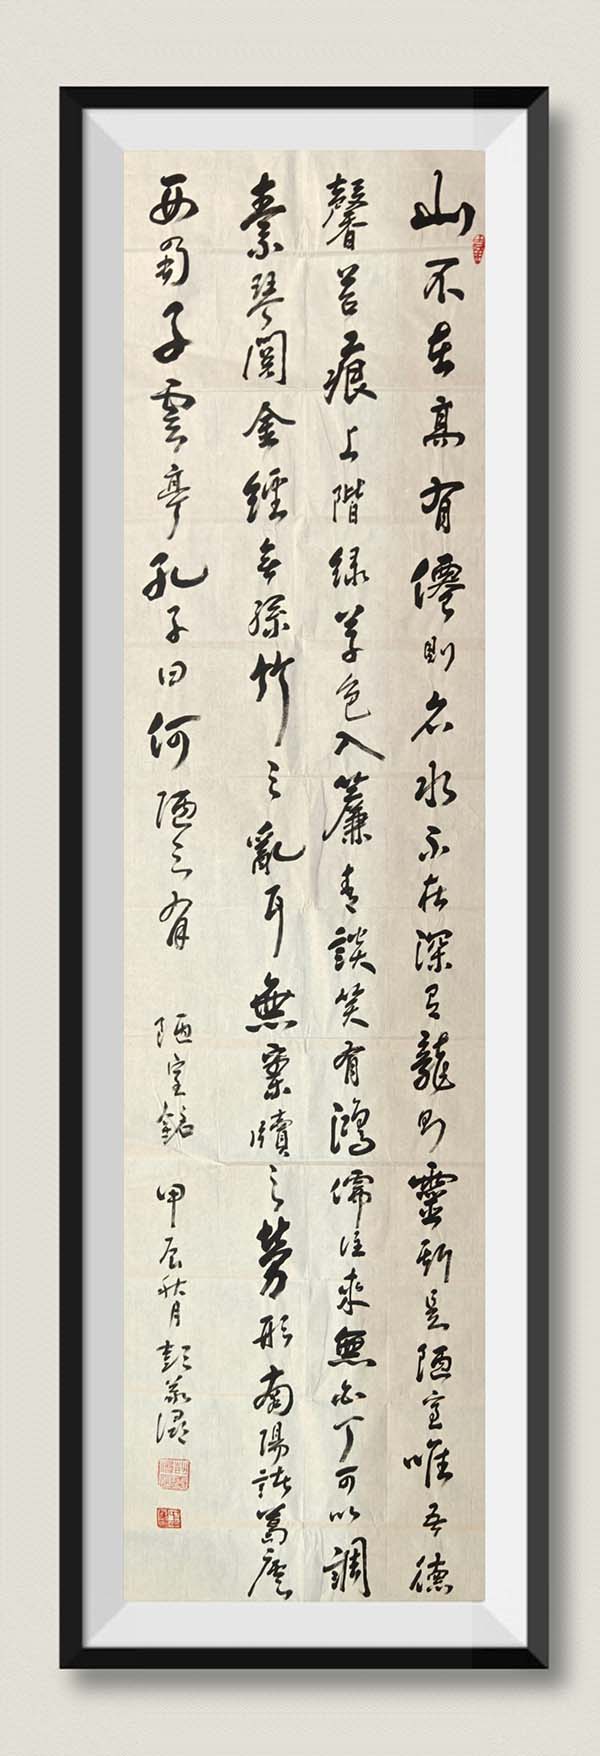 山不在高有僊則名水不在深有龍則靈斯是陋室唯吾德
馨苔痕上階緑草色入簾青談笑有鴻儒往來無白丁可以調
素琴閱金經無絲竹之亂耳無案牘之勞形南陽諸葛廬
西蜀子雲亭孔子曰何陋之有 陋室銘 甲辰秋月 彭